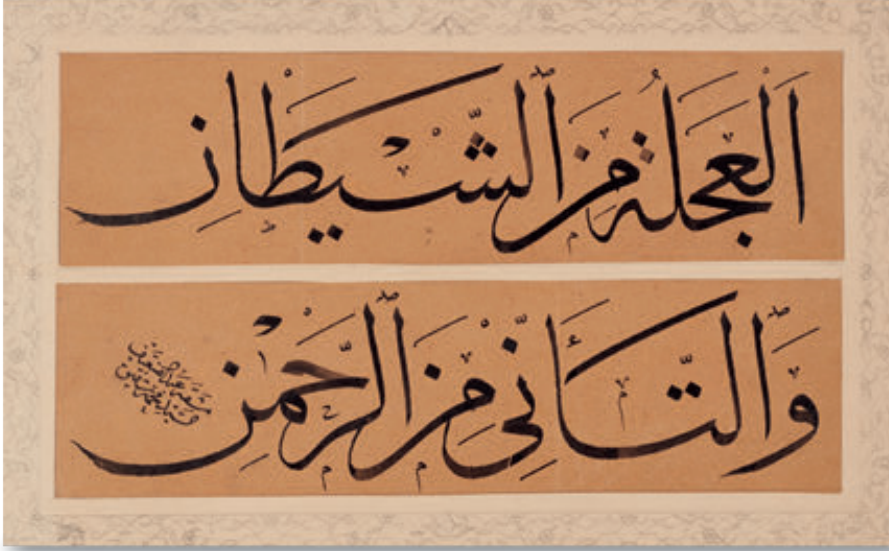 اَلْعَجَلَةُ مِنَ ٱلشَّيْطَانِ
وَٱلتَّأَنِّي مِنَ ٱلرَّحْمٰنِ